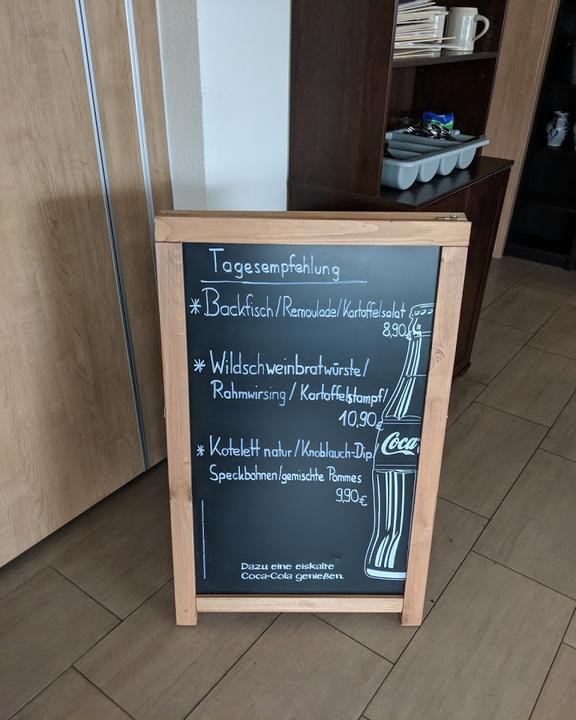 Tagesempfehlung
* Backfisch/Remoulade/Kartoffelsalat
8,90€
* Wildschweinbratwürste/
Rahmwirsing/Kartoffelstampf/
10,90€
* Kotelett natur/Knoblauch-Dip/
Speckbohnen/gemischte Pommes
9,90€
Coca
Dazu eine eiskalte
Coca-Cola genießen.